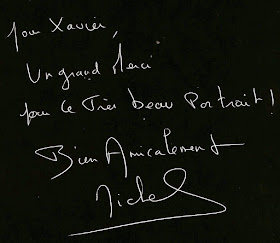 Pour Xavier,
Un grand Merci
pour ce Très beau Portrait !
Bien Amicalement
Michel